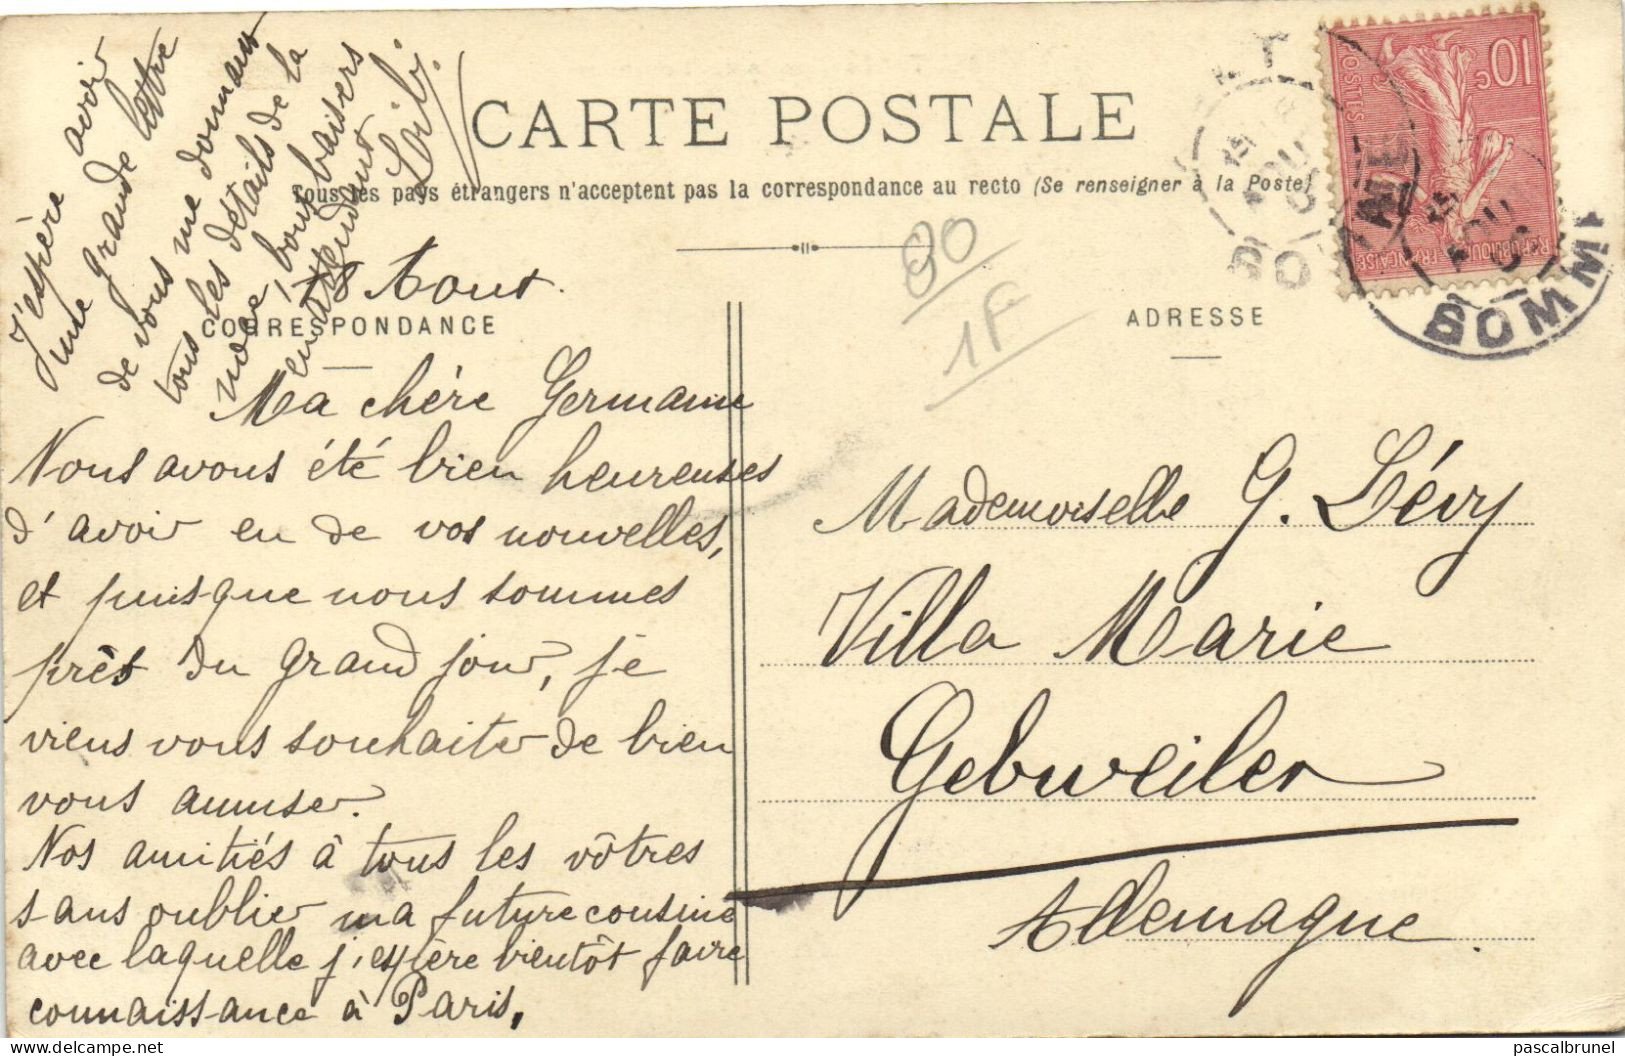 CARTE POSTALE
Tous les pays étrangers n'acceptent pas la correspondance au recto (Se renseigner à la Poste)
CORRESPONDANCE
ADRESSE
Aout.
Ma chère Germaine
Nous avons été bien heureuses
d'avoir eu de vos nouvelles,
et puisque nous sommes
près du grand jour, je
viens vous souhaiter de bien
vous amuser.
Nos amitiés à tous les vôtres
sans oublier ma future cousine
avec laquelle j'espère bientôt faire
connaissance à Paris.
J'espère avoir
une grande lettre
de vous me donnant
tous les détails de la
noce, bons baisers
en attendant
Mademoiselle G. Lévy
Villa Marie
Gebweiler
Allemagne.
90
1F
10c
POSTES
REPUBLIQUE FRANÇAISE
SOMME
pascalbrunel delcampe.net